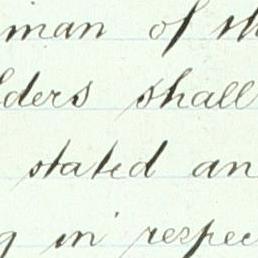 man of th
lders shall
stated an
g in respec